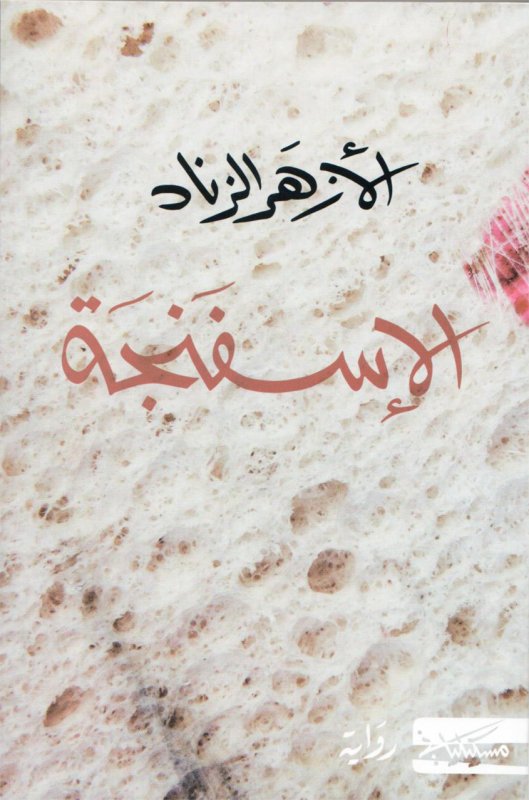 الأزهَر الزناد
الإسفَنجَة
رِوَاية
مسكيلياني